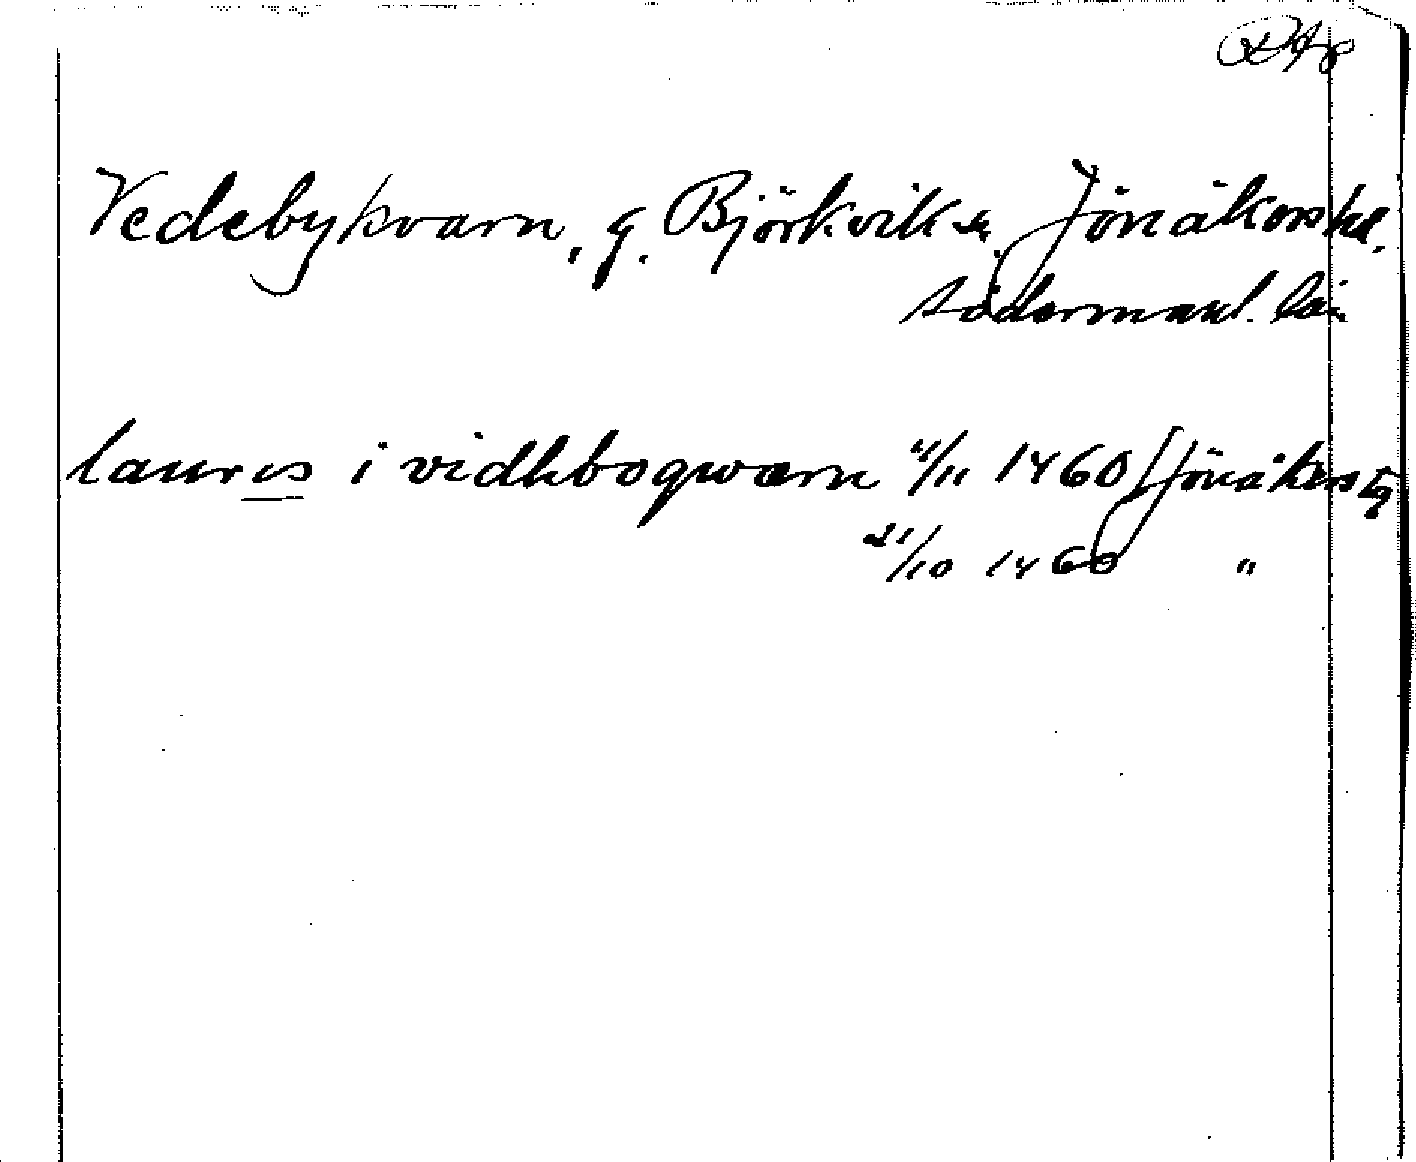 Vedebykvarn, g. Björkvik sn Jönåkers hd.
Söderman. län
laures i vidhboqwarn 4/11 1460 Jönåkers
21/10 1460 "